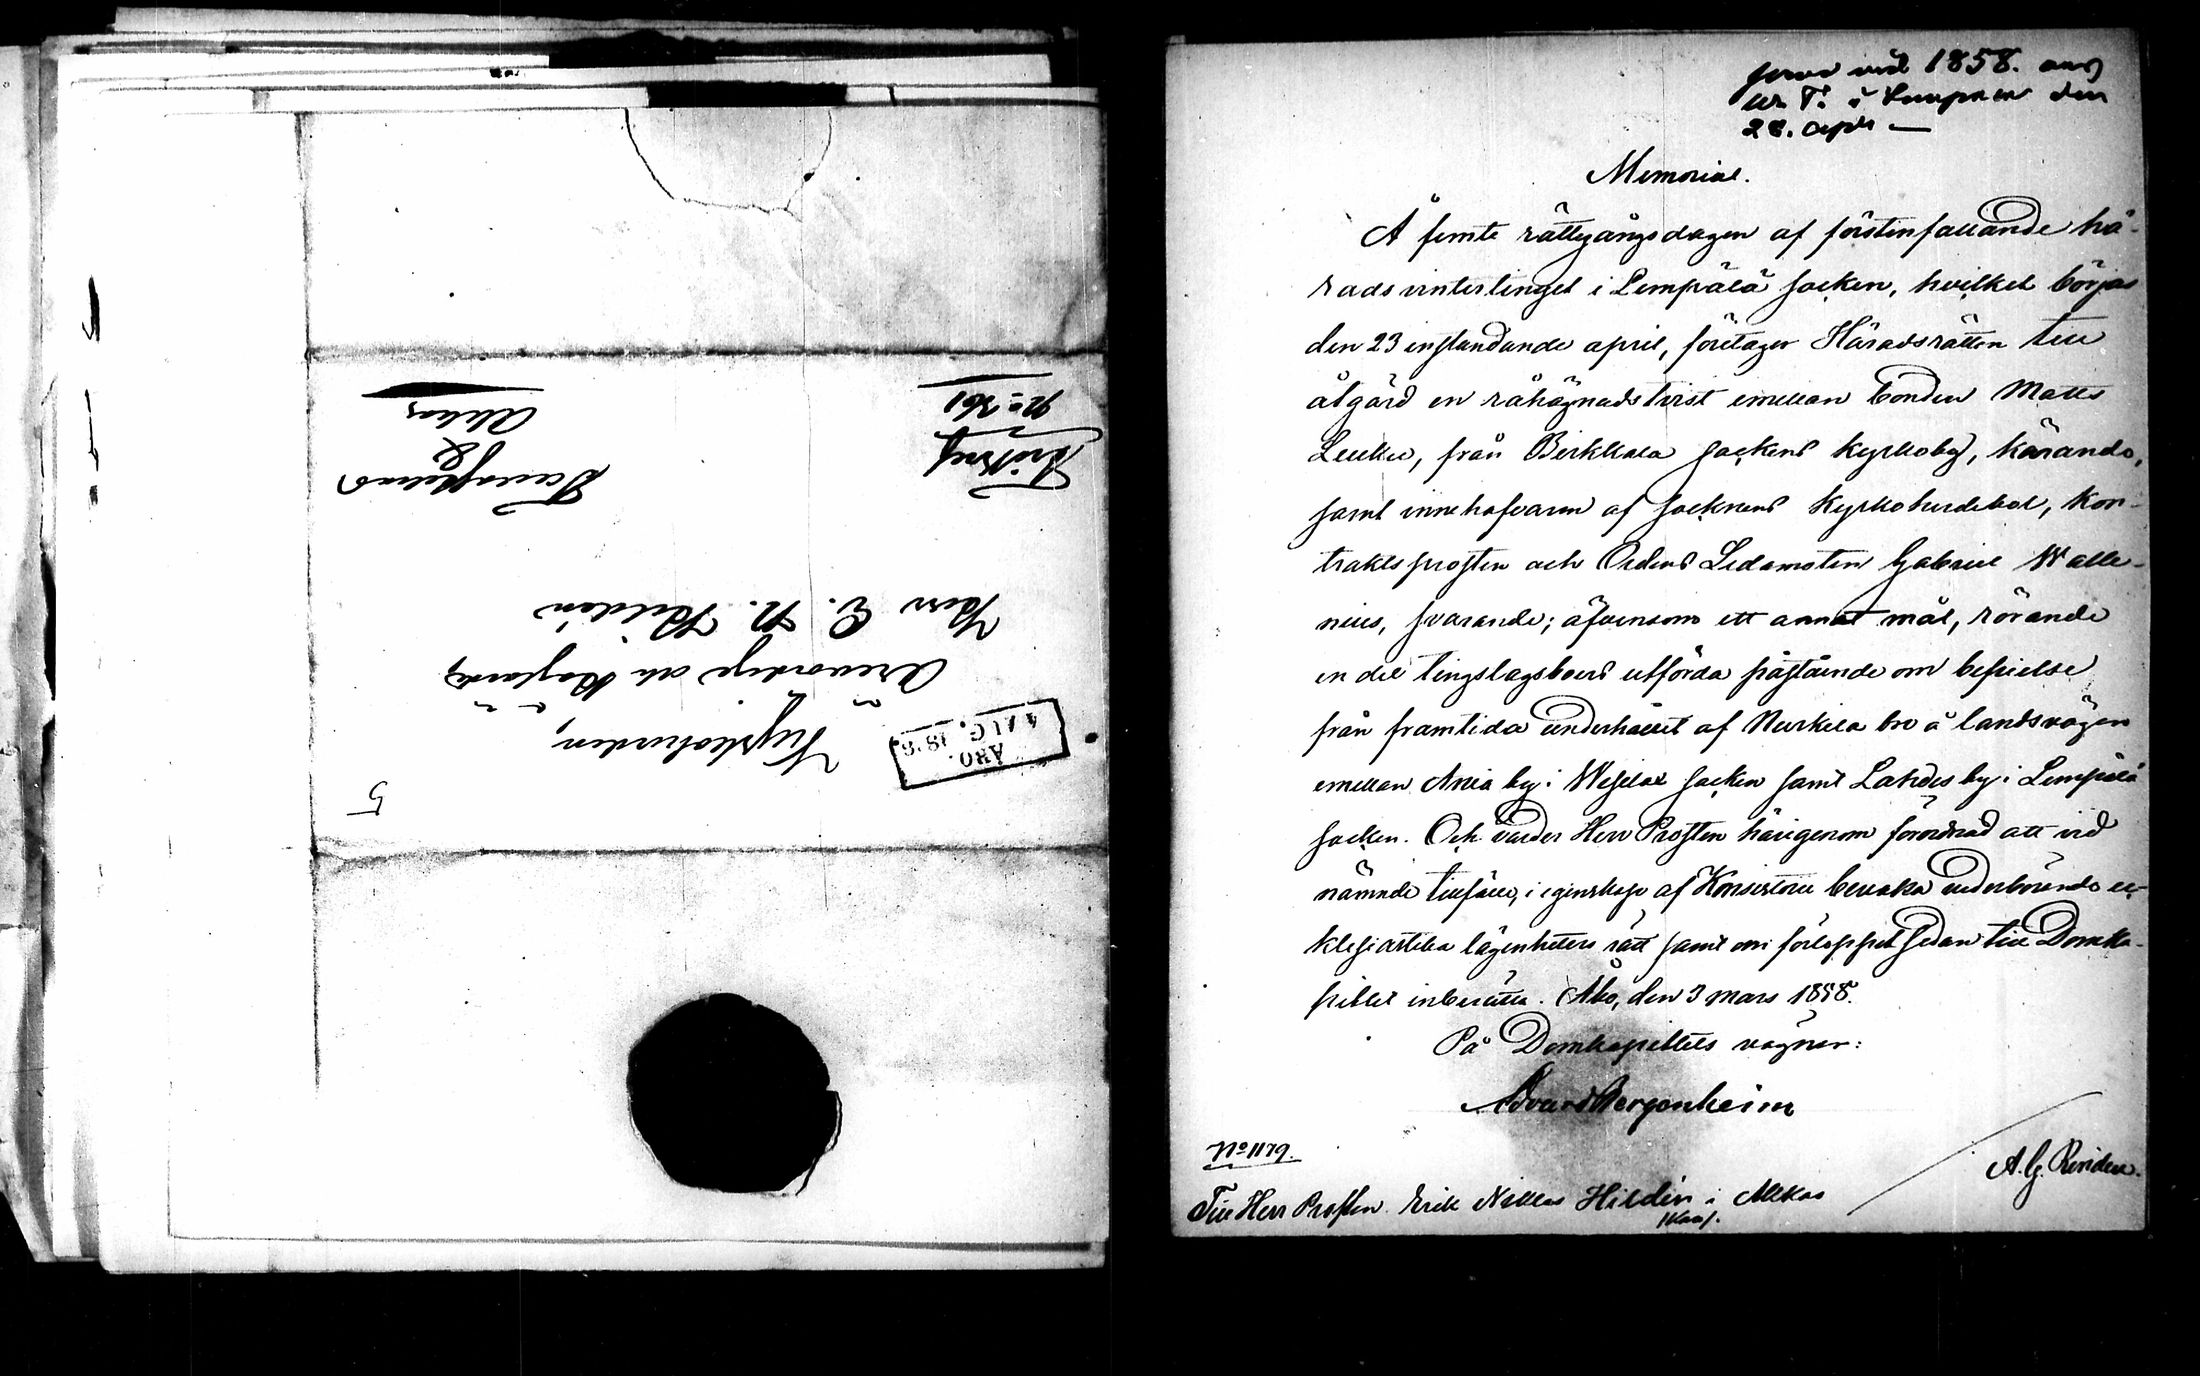 5
ÅBO.
4 AUG. 1858.
Kyrkoherden,
Ärevördige och Höglärde
Herr E. N. Hildén
Fribref
No 361
Tavastehus
&
Akkas
1858.
i den
28. april —
Memorial.
Å femte rättegångsdagen af förstinfallande hä-
radsvintertinget i Lempälä socken, hvilket börjas
den 23 instundande april, företager Häradsrätten till
åtgärd en råhägnadstvist emellan bonden Matts
Leuku, från Birkkala sockens kyrkoby, kärande,
samt innehafvaren af socknens Kyrkoherdebol, Kon-
traktsprosten och Ordens Ledamoten Gabriel Walle-
nius, svarande; äfvensom ett annat mål, rörande
en del tingslagsboers utförda påstående om befrielse
från framtida underhållet af Nurkila bro å landsvägen
emellan Ania by i Wesilax socken samt Lahdes by i Lempälä
socken. Och varder Herr Prosten härigenom förordnad att vid
nämnde tillfälle, i egenskap af Konsistorii bevaka vederbörande ec-
klesiastika lägenheters rätt samt om förloppet sedan till Domka-
pitlet inberätta. Åbo, den 3 mars 1858.
På Domkapitlets vägnar:
Edvard Bergenheim
No 1179.
A. G.
Till Herr Prosten Erik Niklas Hildén i Akkas